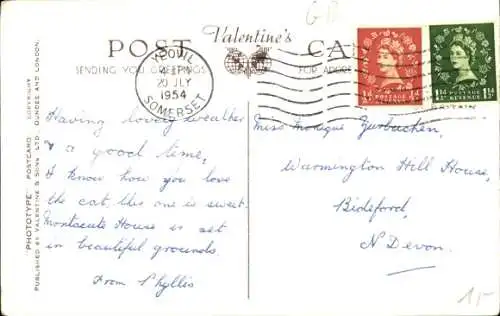 GB
Valentine's
POST CA
SENDING YOU GREETINGS FOR ADDRESS
YEOVIL
20 JLY
1954
SOMERSET
½D
POSTAGE
1½D
POSTAGE
REVENUE
1½D
Having lovely weather
& a good time,
I know how you love
the cat, this one is sweet.
Montacute House is set
in beautiful grounds
From Phyllis
Miss Monique Zurbuchen,
Warmington Hill House,
Bideford,
N Devon.
"PHOTOTYPE" POSTCARD COPYRIGHT
PUBLISHED BY VALENTINE & SONS LTD. DUNDEE AND LONDON.